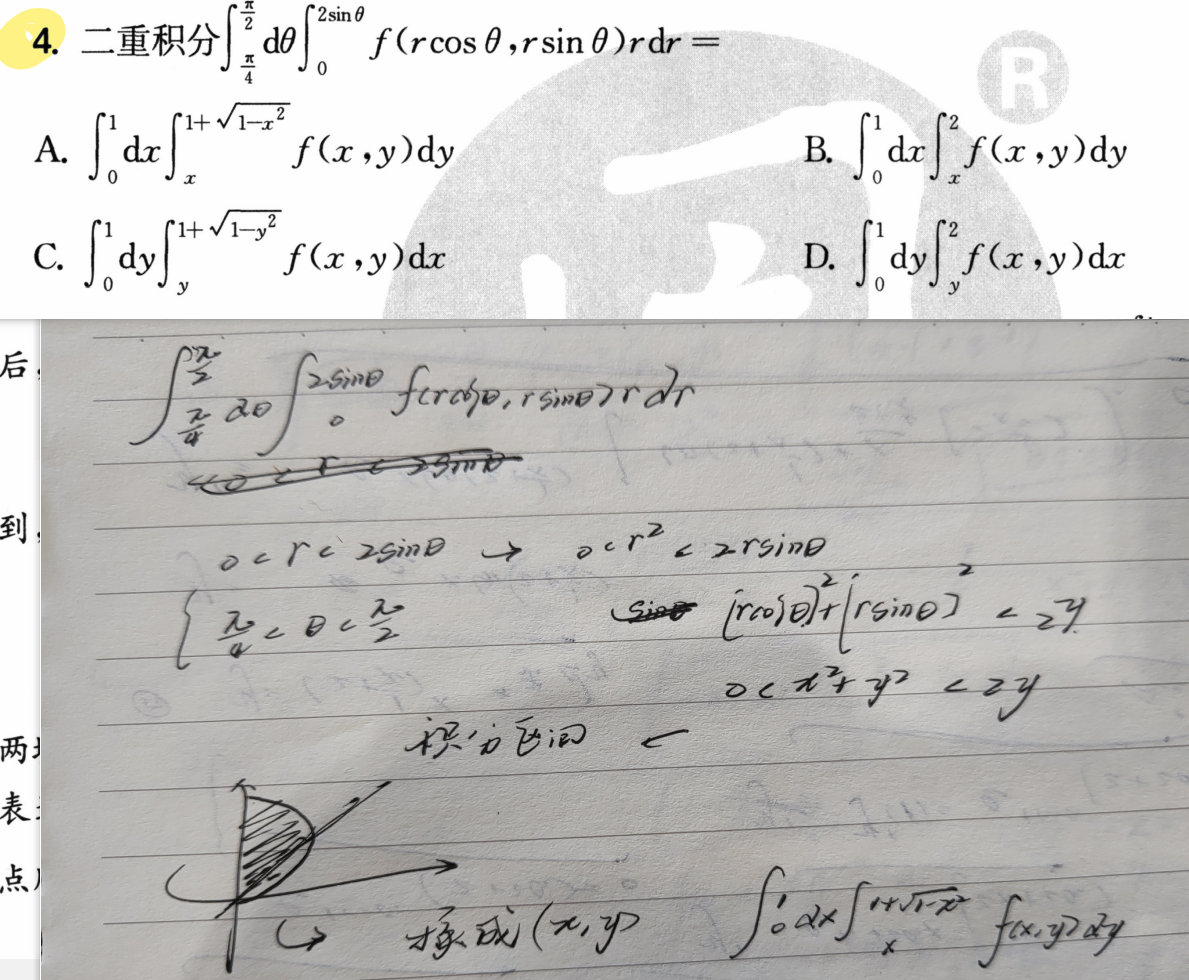 4. 二重积分∫_{π/4}^{π/2} dθ ∫_0^{2sinθ} f(rcosθ,rsinθ)rdr =
A. ∫_0^1 dx ∫_x^{1+√(1−x²)} f(x,y)dy
B. ∫_0^1 dx ∫_x^2 f(x,y)dy
C. ∫_0^1 dy ∫_y^{1+√(1−y²)} f(x,y)dx
D. ∫_0^1 dy ∫_y^2 f(x,y)dx
R
后,
到,
表
点
∫_{π/4}^{π/2} dθ ∫_0^{2sinθ} f(rcosθ, rsinθ) r dr
0 < r < 2sinθ
0 < r < 2sinθ → 0 < r² < 2rsinθ
{ π/4 < θ < π/2
sinθ (rcosθ)² + (rsinθ)² < 2y
0 < x² + y² < 2y
积分区间 ←
↪ 换成 (x, y) ∫_0^1 dx ∫_x^{1+√1-x²} f(x,y) dy